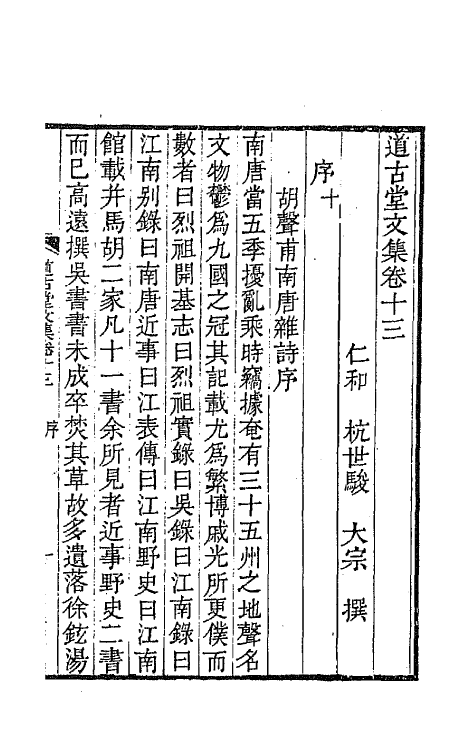 道古堂文集卷十三
仁和 杭世駿 大宗 撰
序十
胡聲甫南唐雜詩序
南唐當五季擾亂乘時竊據奄有三十五州之地聲名
文物鬱爲九國之冠其記載尤爲繁博戚光所更僕而
數者曰烈祖開基志曰烈祖實錄曰吳錄曰江南錄曰
江南别錄曰南唐近事曰江表傳曰江南野史曰江南
館載并馬胡二家凡十一書余所見者近事野史二書
而已高遠撰吳書書未成卒焚其草故多遺落徐鉉湯
道古堂文集卷十三 序 一